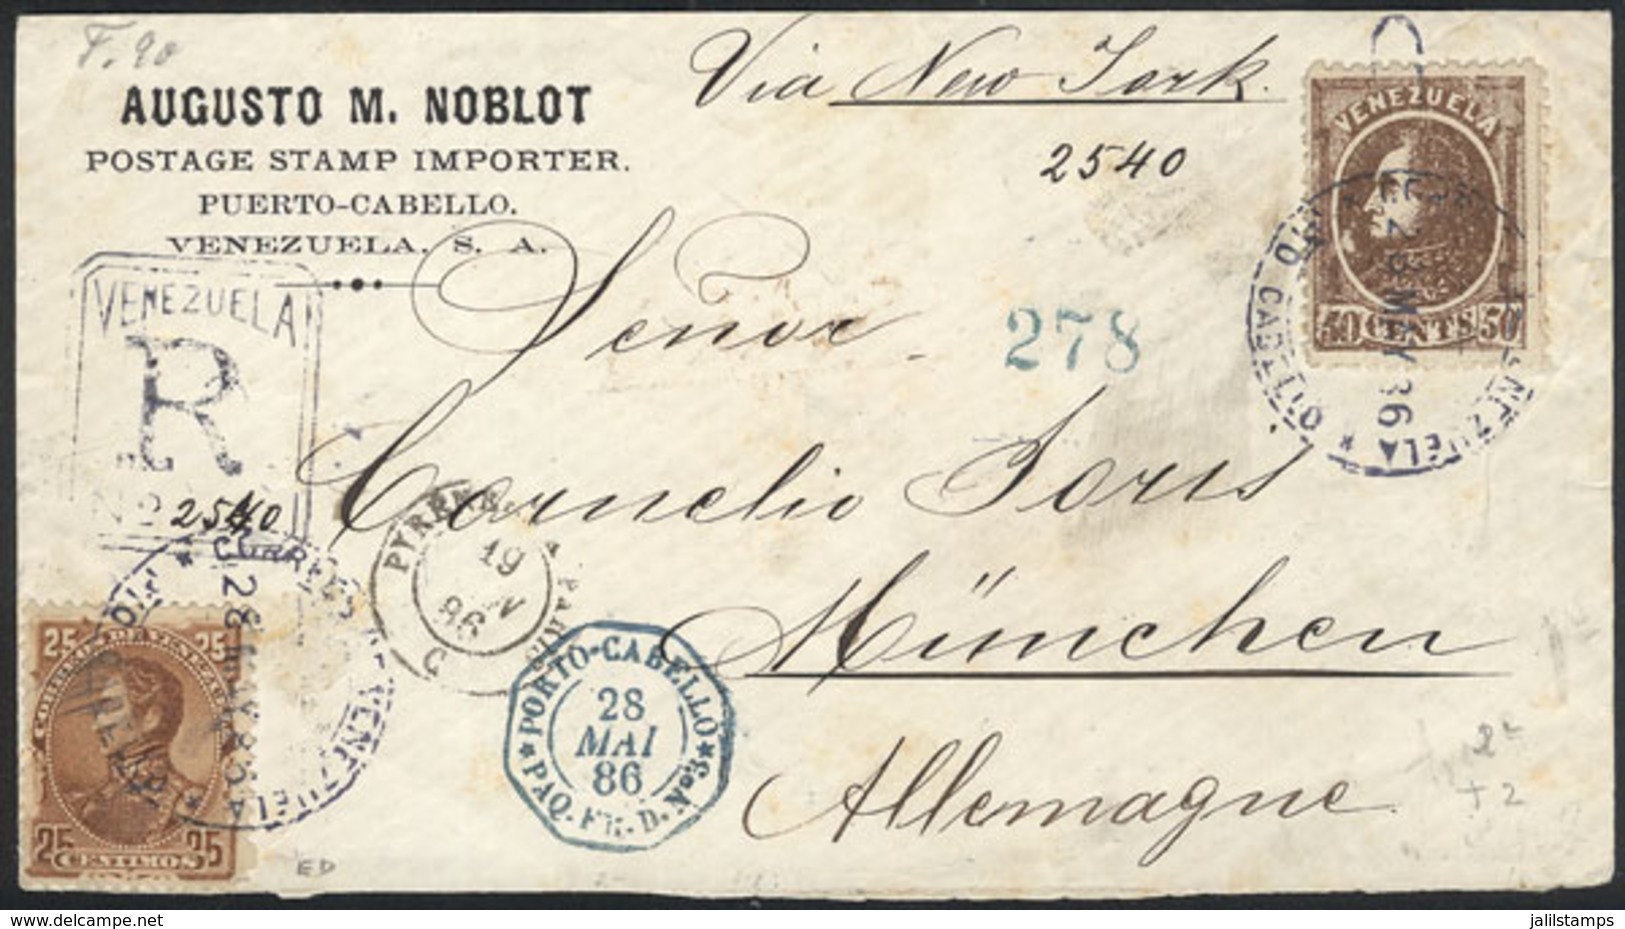 F. 90
AUGUSTO M. NOBLOT
POSTAGE STAMP IMPORTER.
PUERTO-CABELLO.
VENEZUELA. S. A.
Via New York.
2540
VENEZUELA
50 CENTS 50
CABELLO
28 MAY 86
VENEZUELA
R
No 2540
278
Señor
Cornelio Joris
München
Allemagne
PYRENEES A PARIS
19
86
C
PORTO-CABELLO
28
MAI
86
PAQ. FR. D. No 3
CORREOS
28 MAY 86
VENEZUELA
25 25
CORREOS DE VENEZUELA
25 25
CENTIMOS
ED
+ 2
www.delcampe.net
jalilstamps